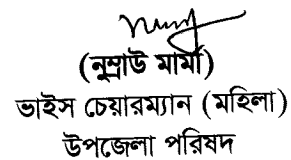 (নুম্রাউ মার্মা)
ভাইস চেয়ারম্যান (মহিলা)
উপজেলা পরিষদ